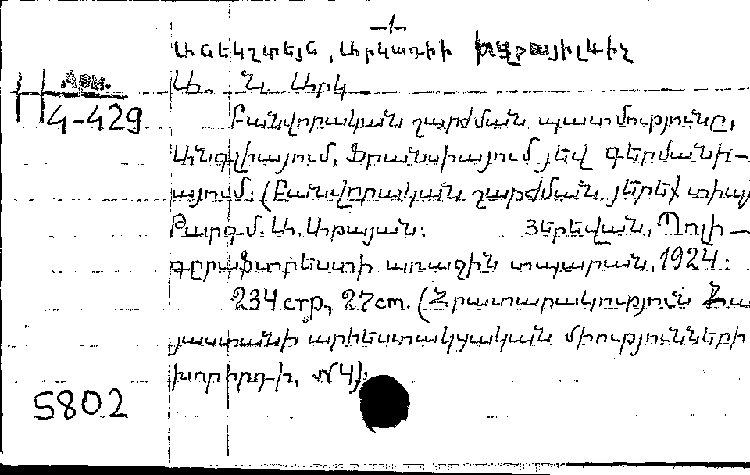 -1-
Անեկշտեյն, Արկադիի
Арм.
Ա. Ն. Արկ
4-429
Բանվորական շարժման պատմությունը,
Անգլիայում, Ֆրանսիայում յեվ գերմանի-
այում. (Բանվորական շարժման յերեք տիպ
Թարգմ. Ա. Աթայան: Յերեվան, Պոլի-
գըրաֆտրեստի առաջին տպարան, 1924:
234 стр., 27 cm. (Հրատարակություն Հա
յաստանի արհեստակցական միությունների
խորհրդի, №4):
5802